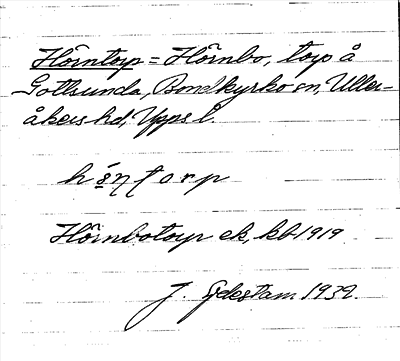 Hörntorp = Hörnbo, torp å
Gottsunda, Bondkyrko sn, Uller-
åkers hd, Upps l.
hö́ṇtorp
Hörnbotorp ek, kb 1919
J. 1939.